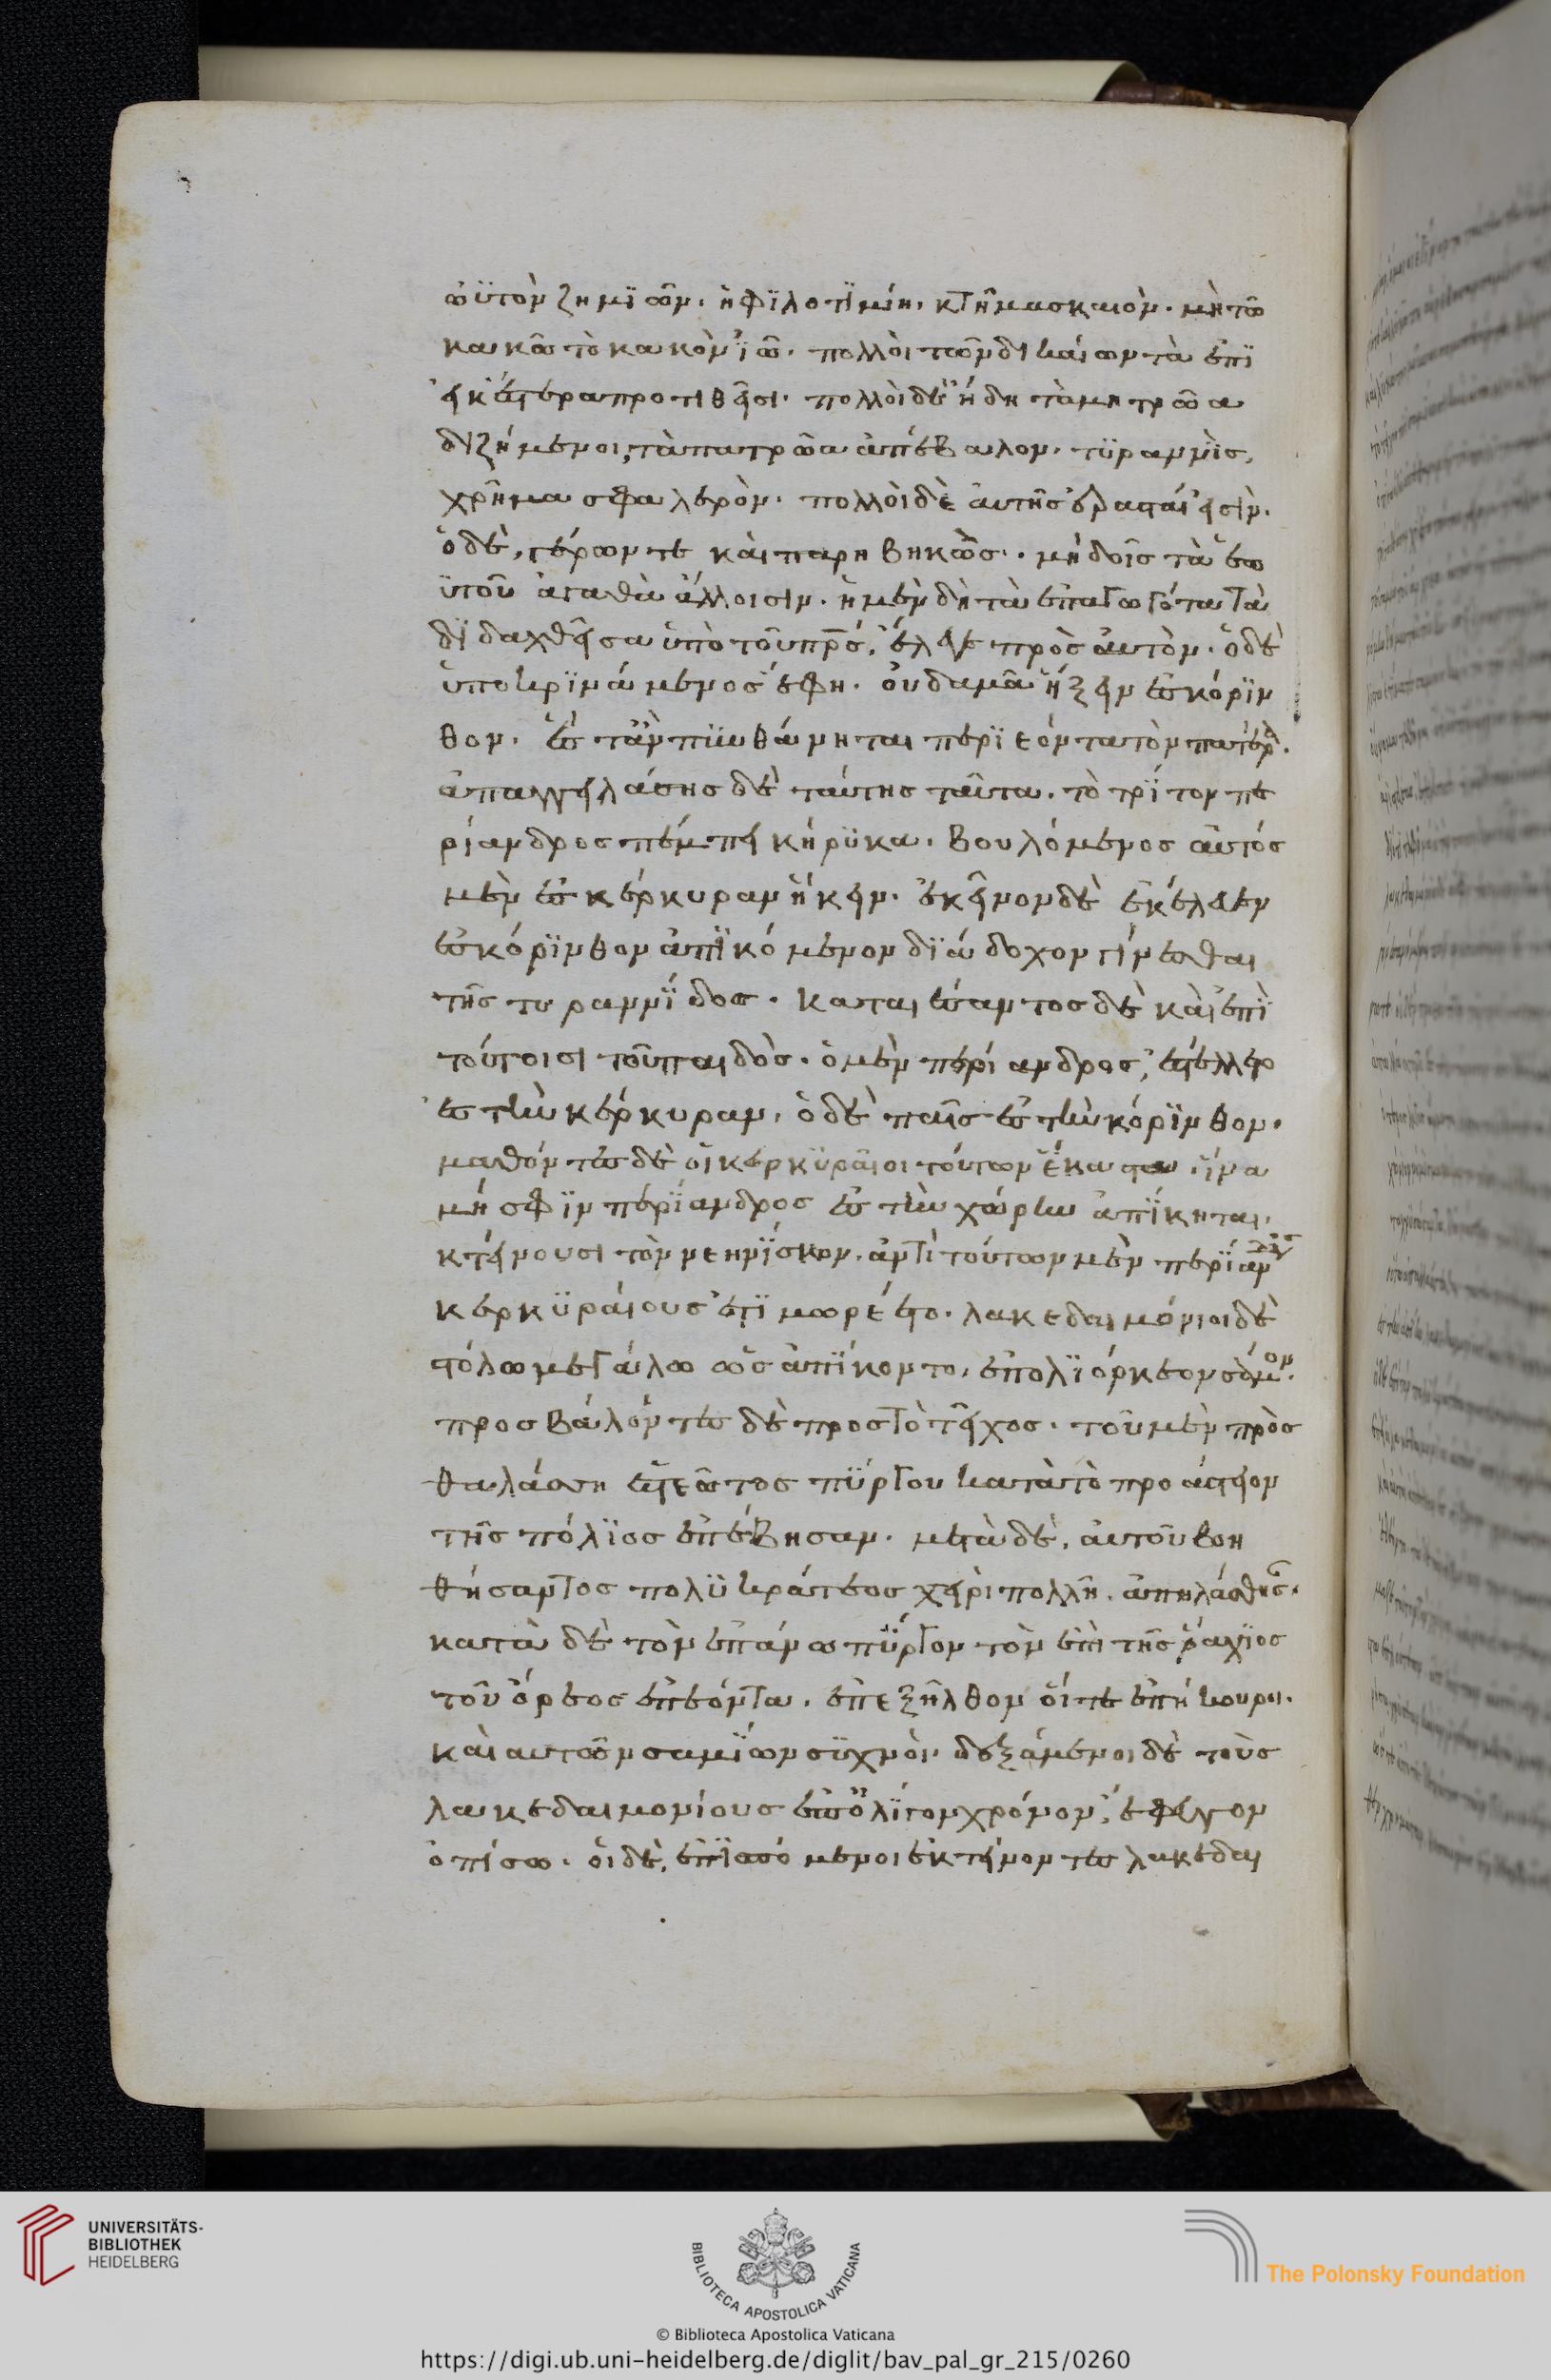 ωϋτὸν ζημϊῶν. ἡ φϊλοτϊμίη, κτῆμα σκαιὸν. μὴ τῶ
κακῶ τὸ κακὸν ἰῶ. πολλοὶ τῶν δικαίων τὰ ἐπϊ
εικέστερα προτιθεῖσι. πολλοὶ δὲ ἤδη τὰ μητρῶα
διζήμενοι, τὰ πατρῶα ἀπέβαλον. τϋραννὶς,
χρῆμα σφαλερὸν. πολλοὶ δὲ αὐτῆς ἐρασταί εἰσὶν.
ὁ δὲ, γέρων τε καὶ παρηβηκὼς. μὴ δοῖς τὰ ἑω
ϋτοῦ ἀγαθὰ ἄλλοισιν. ἡ μὲν δὴ τὰ ἐπαγωγότατα
δϊδαχθεῖσα ὑπὸ τοῦ πρς, ἔλεγε πρὸς αὐτὸν. ὁ δὲ
ὑποκρϊνάμενος ἔφη. οὐδαμᾶ ἥξειν ἐς κόρϊν
θον. ἔς τ' ἂν πϋνθάνηται περϊεόντα τὸν πατέρα.
ἀπαγγειλάσης δὲ ταύτης ταῦτα. τὸ τρίτον πε
ρίανδρος πέμπει κήρϋκα. βουλόμενος αὐτός
μὲν ἐς κέρκυραν ἥκειν. ἐκεῖνον δὲ ἐκέλευεν
ἐς κόρϊνθον ἀπϊκόμενον δϊάδοχον γίνεσθαι
τῆς τυραννΐδος. καταινέσαντος δὲ καὶ ἐπὶ
τούτοισι τοῦ παιδὸς. ὁ μὲν περίανδρος, ἐστέλλετο
ἐς τὴν κέρκυραν, ὁ δὲ παῖς ἐς τὴν κόρϊνθον.
μαθόντες δὲ οἱ κερκϋραῖοι τούτων ἕκαστα, ἵνα
μή σφϊν περΐανδρος ἐς τὴν χώρην ἀπΐκηται,
κτείνουσι τὸν νεηνΐσκον. ἀντὶ τούτων μὲν περΐανδρος
κερκϋραίους ἐτϊμωρέετο. λακεδαιμόνιοι δὲ
στόλω μεγάλω ὡς ἀπΐκοντο, ἐπολϊόρκεον σάμον.
προσβάλόντες δὲ προς τὸ τεῖχος. τοῦ μὲν πρὸς
θαλάσση ἑστεῶτος πΰργου κατὰ τὸ προάστειον
τῆς πόλϊος ἐπέβησαν. μετὰ δὲ, αὐτοῦ βοη
θήσαντος πολϋκράτεος χειρὶ πολλῆ. ἀπηλάσθησαν.
κατὰ δὲ τὸν ἐπάνω πΰργον τὸν ἐπὶ τῆς ῥάχϊος
τοῦ ὄρεος ἐπεόντα. ἐπεξῆλθον οἵ τε ἐπίκουροι.
καὶ αυτῶν σαμΐων σϋχνοὶ. δεξάμενοι δὲ τοὺς
λακεδαιμονίους ἐπ' ὀλΐγον χρόνον, ἔφευγον
ὀπίσω. οἱ δὲ, ἐπϊσπόμενοι ἔκτεινον τες λακεδαι
© Biblioteca Apostolica Vaticana
https://digi.ub.uni-heidelberg.de/diglit/bav_pal_gr_215/0260
UNIVERSITÄTS-
BIBLIOTHEK
HEIDELBERG
BIBLIOTECA APOSTOLICA VATICANA
The Polonsky Foundation